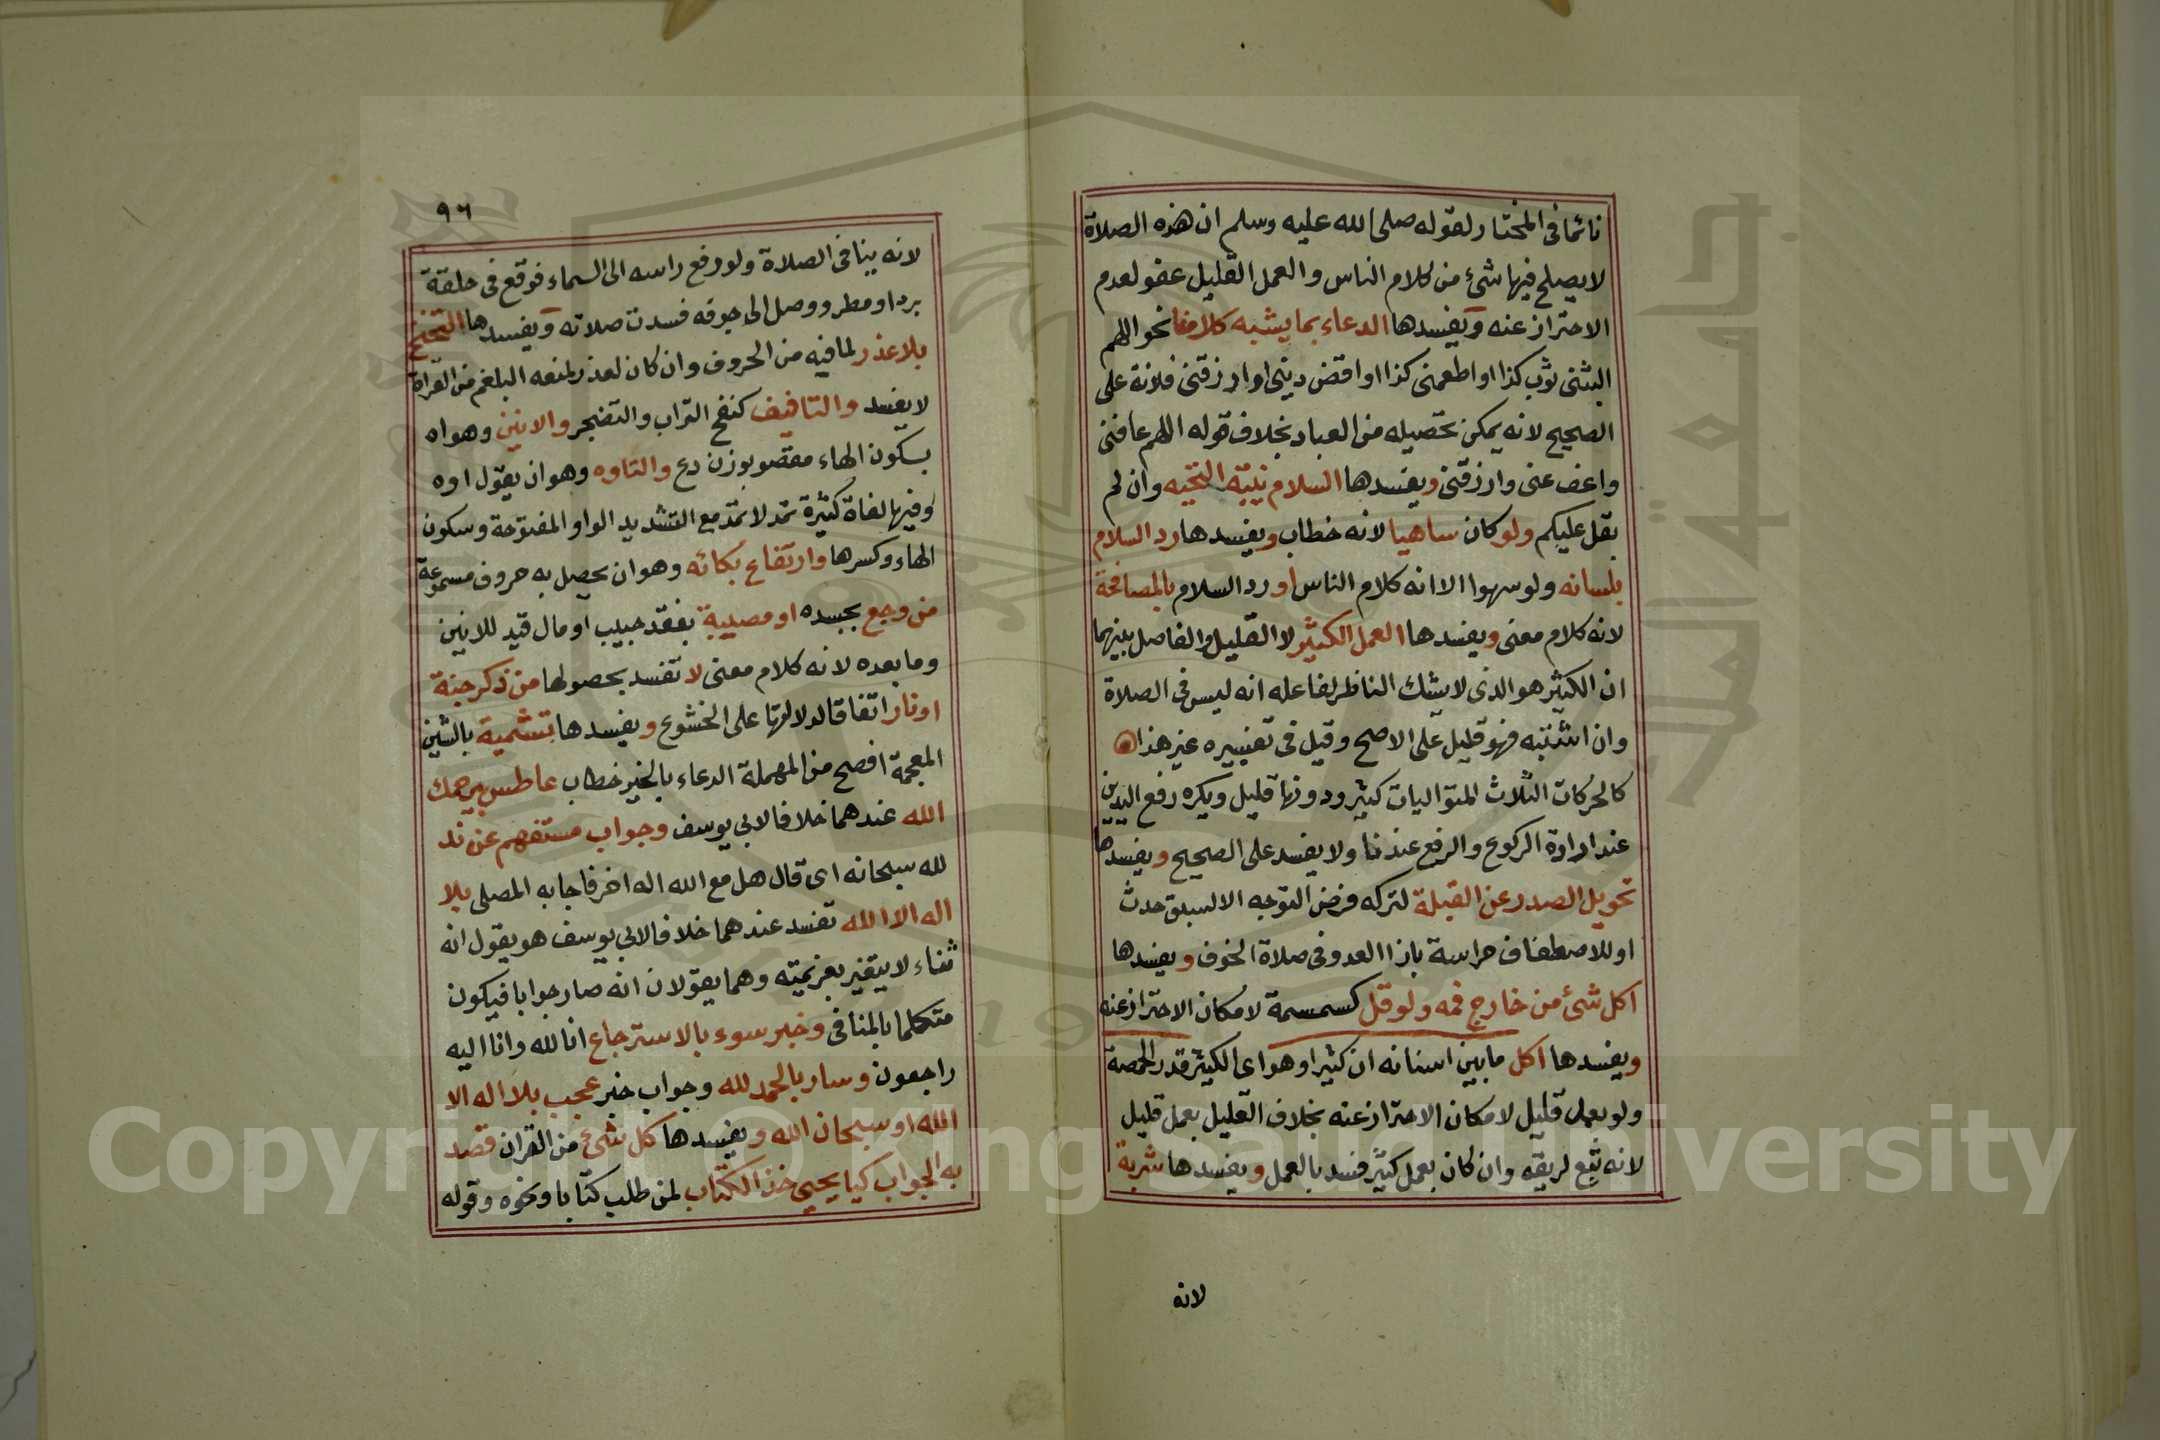 نائما فى المختار لقوله صلى الله عليه وسلم ان هذه الصلاة
لا يصلح فيها شئ من كلام الناس والعمل القليل عفو لعدم
الاحتراز عنه ويفسدها الدعاء بما يشبه كلامنا نحو اللهم
البثنى ثوب كذا او اطعمنى كذا او اقض دينى او ارزقنى فلانة على
الصحيح لانه يمكن تحصيله من العباد بخلاف قوله اللهم عافنى
واعف عنى وارزقنى ويفسدها السلام بنية التحيه وان لم
يقل عليكم ولو كان ساهيا لانه خطاب ويفسدها رد السلام
بلسانه ولو سهوا الا انه كلام الناس او رد السلام بالمصافحة
لانه كلام معنى ويفسدها العمل الكثير لا القليل والفاصل بينهما
ان الكثير هو الذى لا يشك الناظر لفاعله انه ليس فى الصلاة
وان اشتبه فهو قليل على الاصح وقيل فى تفسيره غير هذا
كالحركات الثلاث المتواليات كثير ودونها قليل ويكره رفع اليدين
عند ارادة الركوع والرفع عندنا ولا يفسد على الصحيح ويفسدها
تحويل الصدر عن القبلة لتركه فرض التوجه الا لسبق حدث
او للاصطفاف حراسة بازا العدو فى صلاة الخوف ويفسدها
اكل شئ من خارج فمه ولو قل كسمسمة لامكان الاحتراز عنه
ويفسدها اكل ما بين اسنانه ان كثيرا وهو اى الكثير قدر الحمصة
ولو بعمل قليل لامكان الاحتراز عنه بخلاف القليل بعمل قليل
لانه تبع لريقه وان كان بعمل كثير فسد بالعمل ويفسدها شربة
لانه
٩٦
لانه ينافى الصلاة ولو رفع راسه الى السماء فوقع فى حلقة
برد او مطر ووصل الى جوفه فسدت صلاته ويفسدها التنحنح
بلا عذر لما فيه من الحروف وان كان لعذر لمنعه البلغم من القراة
لا يفسد والتافيف كنفخ التراب والتضجر والانين وهو اه
بسكون الهاء مقصور بوزن دع والتاوه وهو ان يقول اوه
وفيها لغاة كثيرة تمد لا تمد مع التشديد الواو المفتوحة وسكون
الهاء وكسرها وارتفاع بكائه وهو ان يحصل به حروف مسموعة
من وجع بجسده او مصيبة بفقد حبيب او مال قيد للانين
وما بعده لانه كلام معنى لا تفسد بحصولها من ذكر جنة
او نار اتفاقا لدلالتها على الخشوع ويفسدها تشميت بالشين
المعجمة افصح من المهملة الدعاء بالخير خطاب عاطس بيرحمك
الله عندهما خلافا لابي يوسف وجواب مستفهم عن ند
لله سبحانه اى قال هل مع الله اله اخر فاجابه المصلى بلا
اله الا الله تفسد عندهما خلافا لابي يوسف هو يقول انه
ثناء لا يتغير بعزيمته وهما يقولان انه صار جوابا فيكون
متكلما بالمنافى وخبر سوء بالاسترجاع انا لله وانا اليه
راجعون وسار بالحمد لله وجواب خبر عجب بلا اله الا
الله او سبحان الله ويفسدها كل شئ من القران قصد
به الجواب كيا يحيى خذ الكتاب لمن طلب كتابا ونحوه وقوله
Copyright © King Saud University